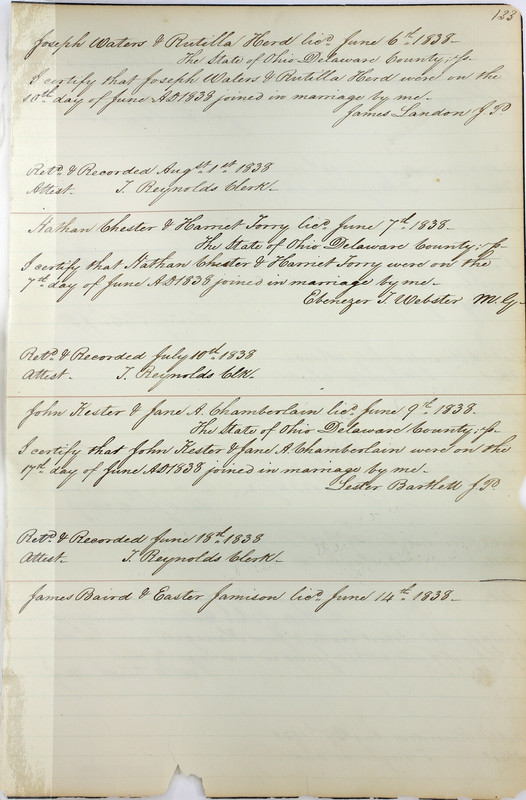 123
Joseph Waters & Rutilla Herd licd. June 6th. 1838-
The State of Ohio Delaware County; ss.
I certify that Joseph Waters & Rutilla Herd were on the
10th day of June AD 1838 joined in marriage by me-
James Landon J.P.
Retd. & Recorded Augst. 1st 1838
Attest. T. Reynolds Clerk-
Nathan Chester & Harriet Torry licd. June 7th. 1838-
The State of Ohio Delaware County; ss-
I certify that Nathan Chester & Harriet Torry were on the
7th day of June AD 1838 joined in marriage by me-
Ebenezer T. Webster M.G-
Retd. & Recorded July 10th 1838
Attest- T. Reynolds Clk-
John Kester & Jane A. Chamberlain licd. June 9th. 1838.
The State of Ohio Delaware County; ss-
I certify that John Kester & Jane A. Chamberlain were on the
17th day of June AD 1838 joined in marriage by me-
Lester Bartlett J.P.
Retd. & Recorded June 18th 1838
Attest- T. Reynolds Clerk-
James Baird & Easter Jamison licd. June 14th. 1838-